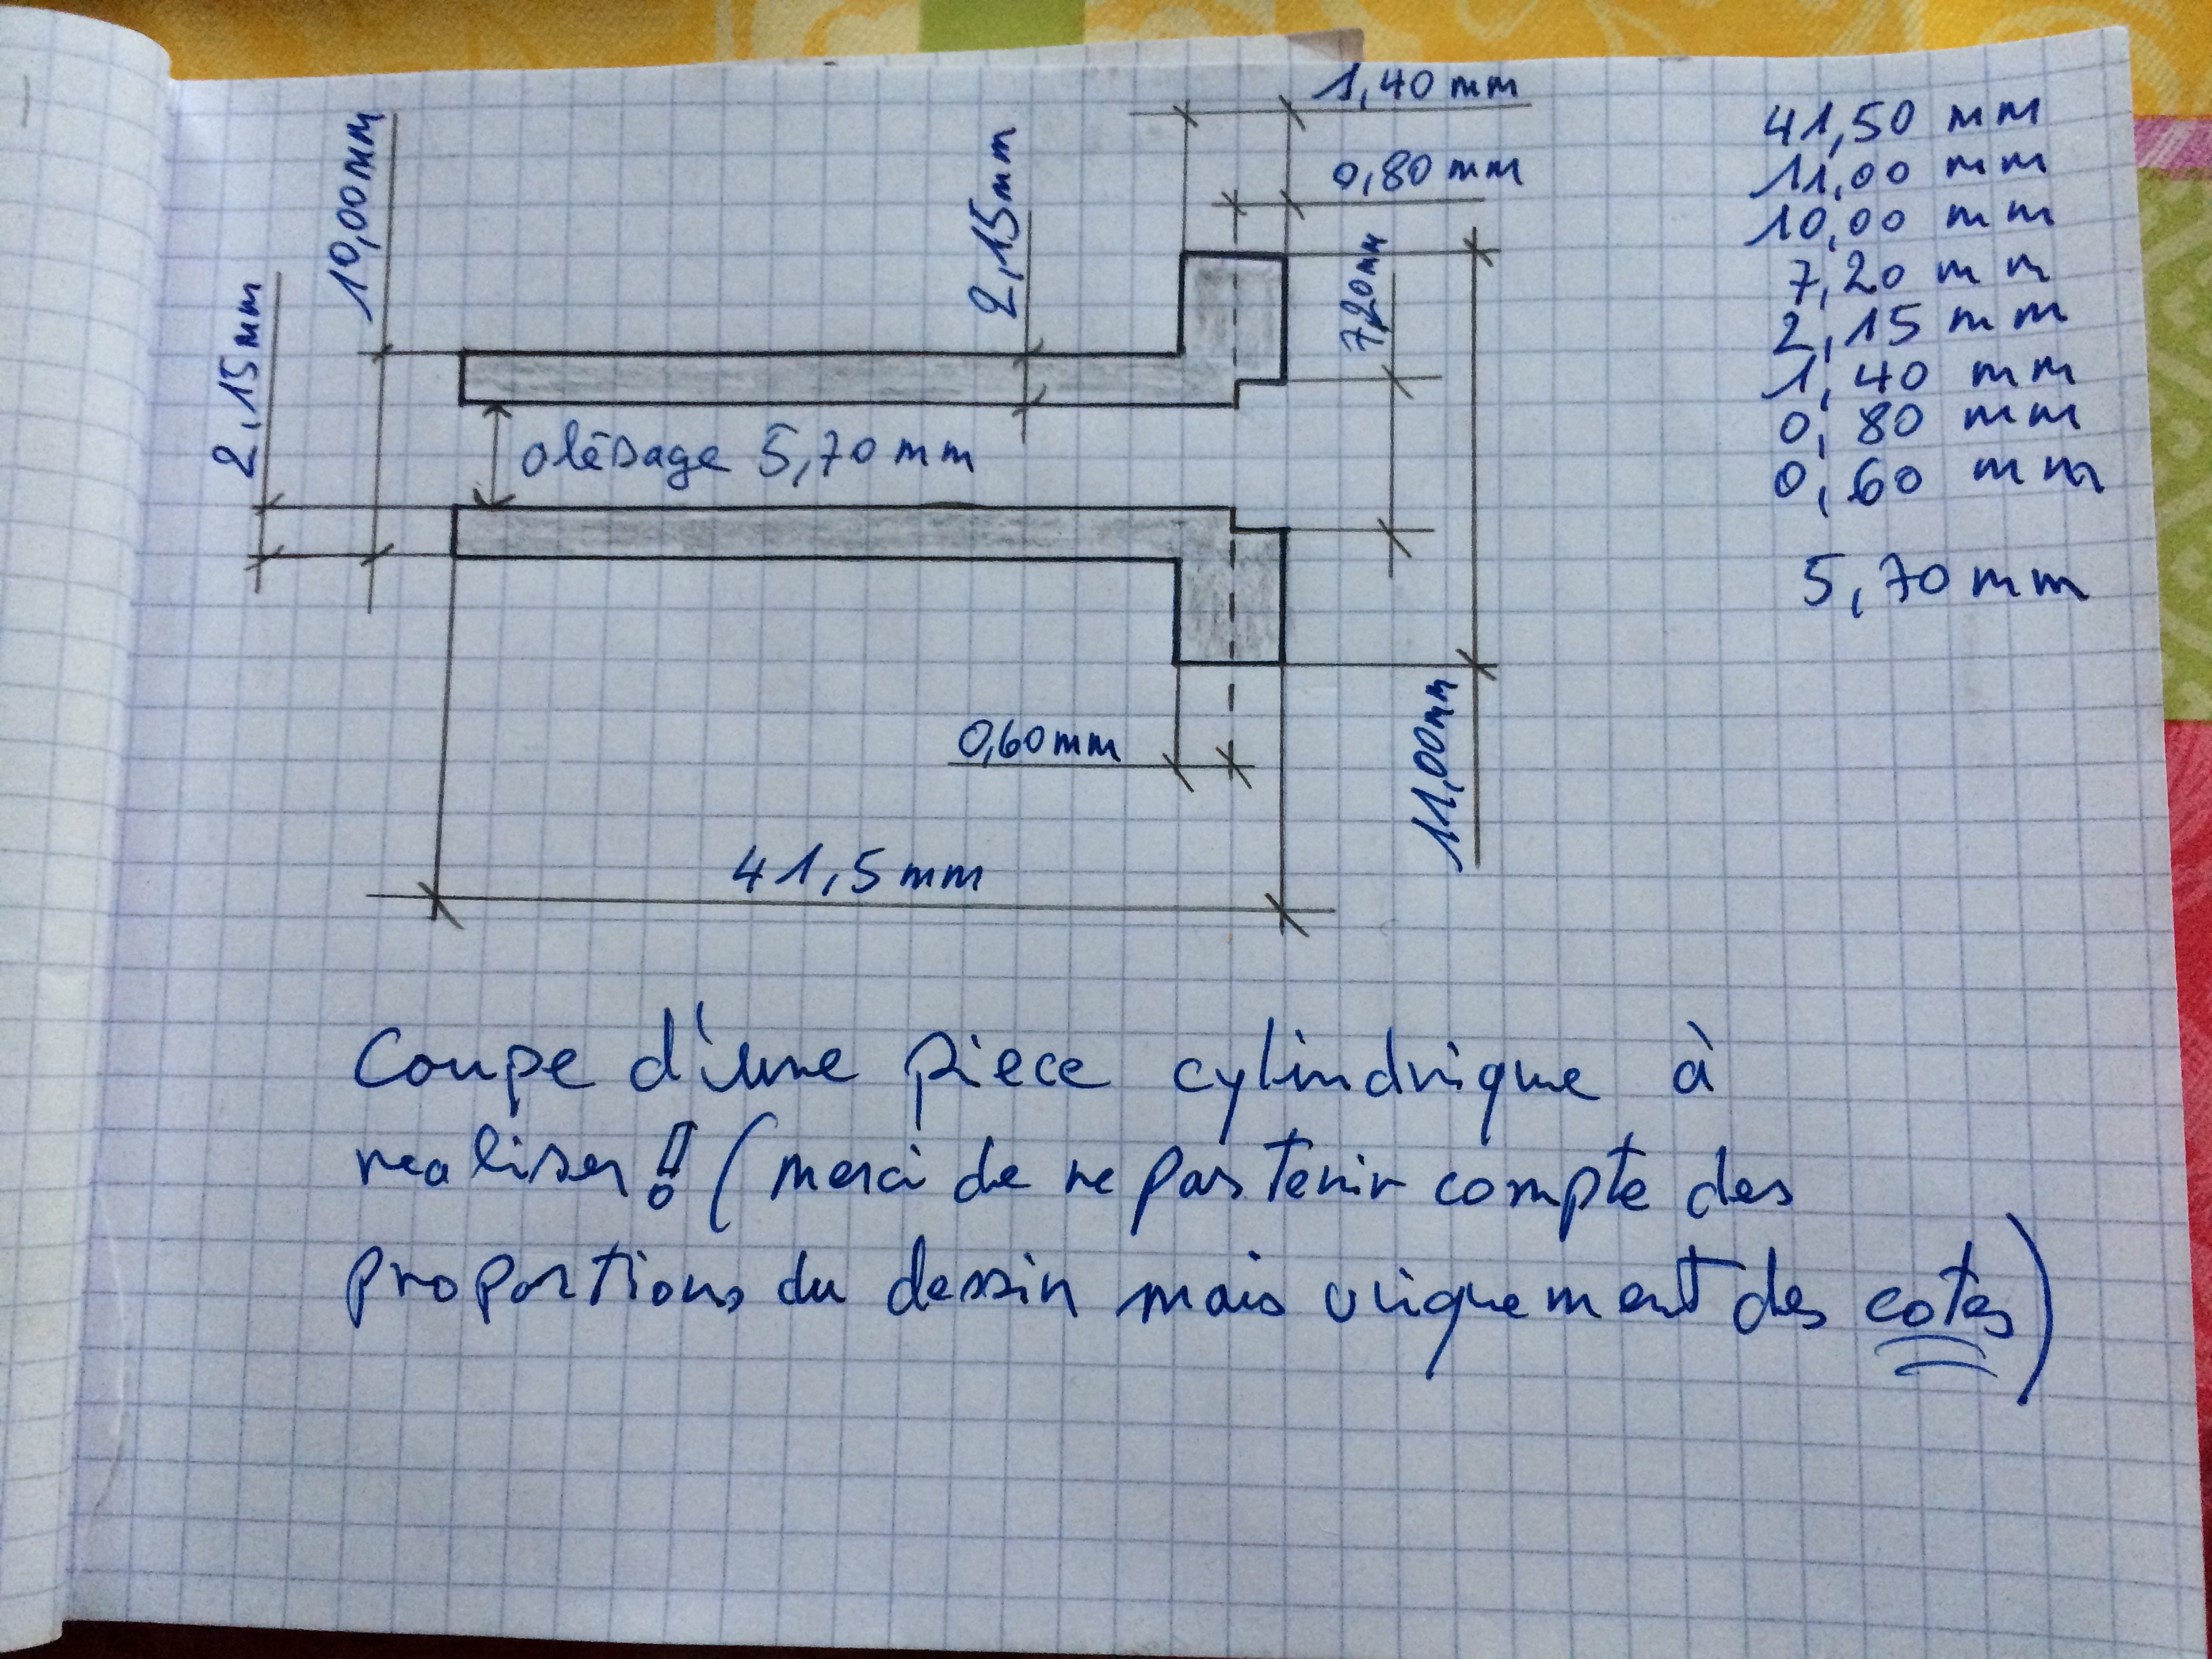 1,40 mm
0,80 mm
10,00 mm
2,15 mm
2,15 mm
7,20 mm
alésage 5,70 mm
0,60 mm
11,00 mm
41,5 mm
41,50 mm
11,00 mm
10,00 mm
7,20 mm
2,15 mm
1,40 mm
0,80 mm
0,60 mm
5,70 mm
Coupe d'une piece cylindrique à
realiser!! (merci de ne pas tenir compte des
proportions du dessin mais uniquement des cotes)